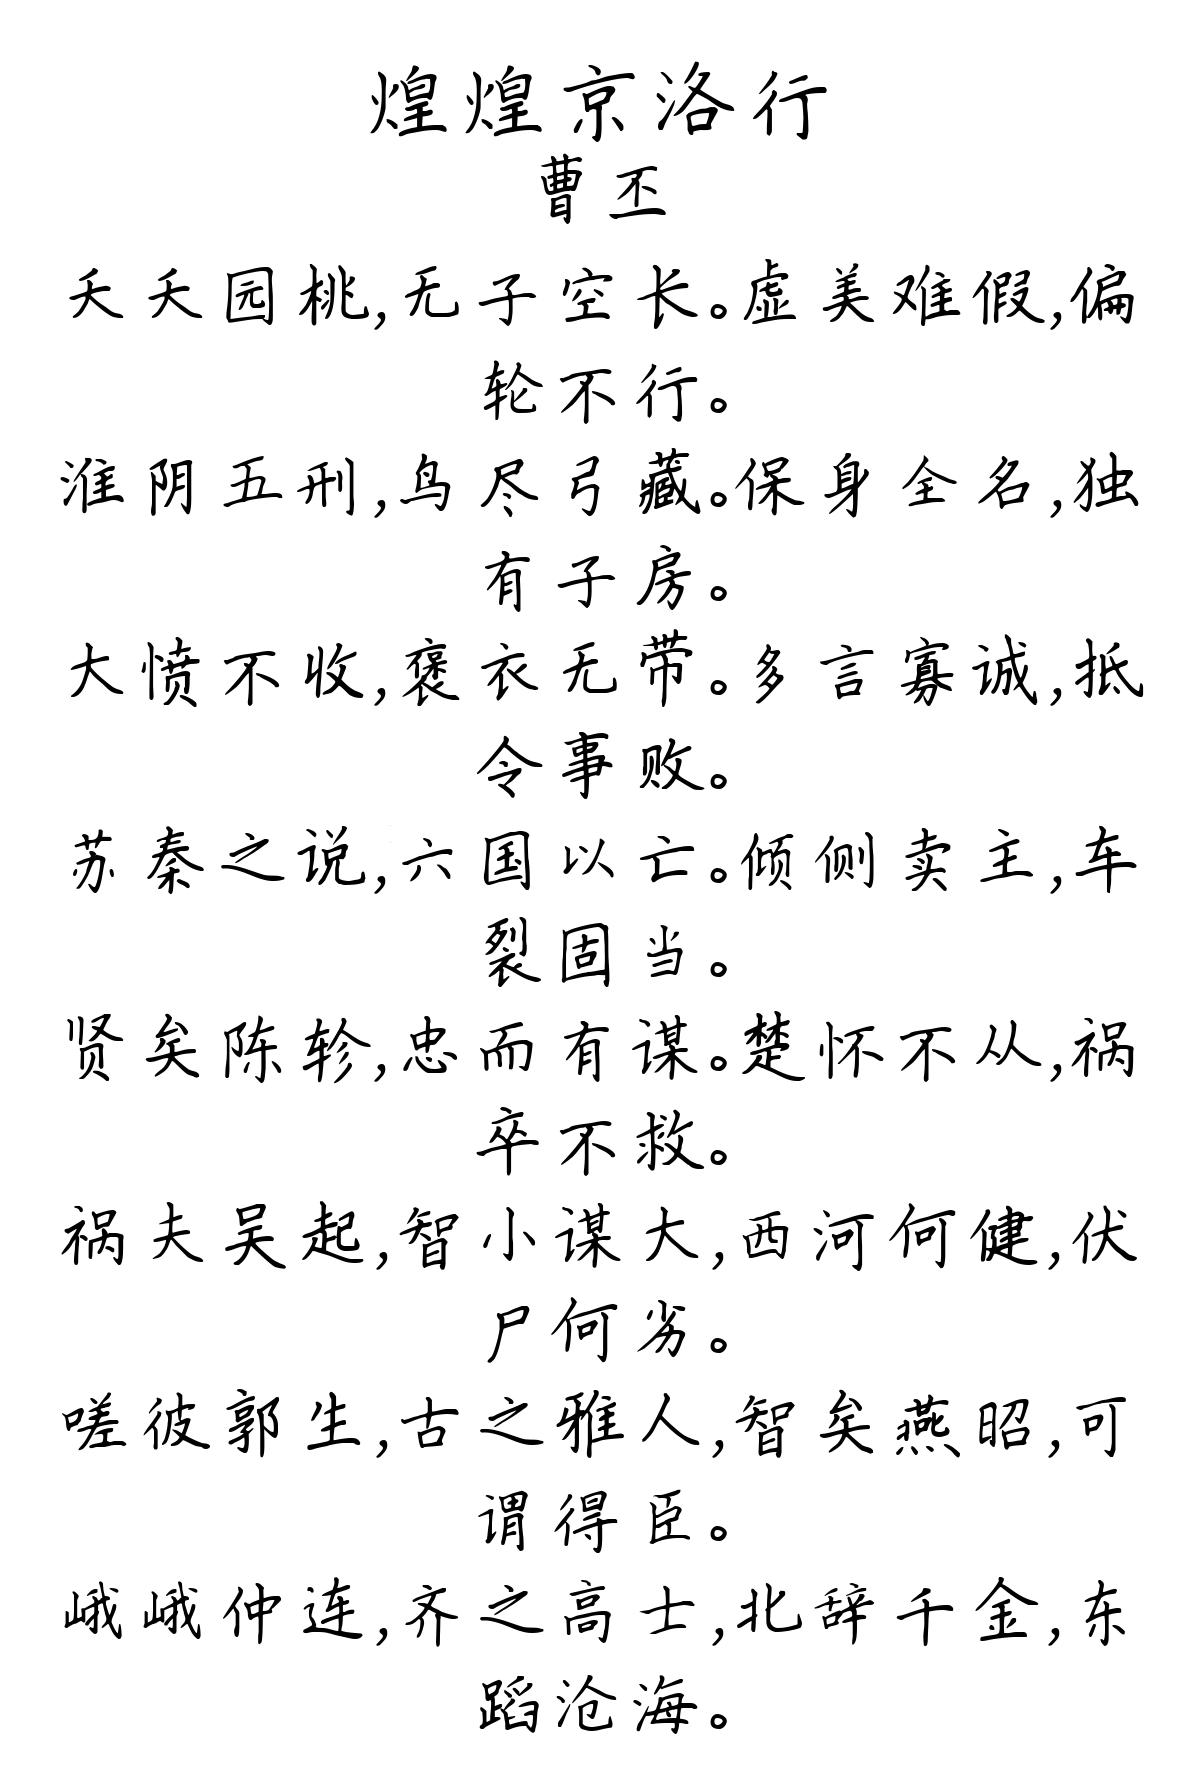 煌煌京洛行
曹丕
夭夭园桃,无子空长。虚美难假,偏
轮不行。
淮阴五刑,鸟尽弓藏。保身全名,独
有子房。
大愤不收,褒衣无带。多言寡诚,抵
令事败。
苏秦之说,六国以亡。倾侧卖主,车
裂固当。
贤矣陈轸,忠而有谋。楚怀不从,祸
卒不救。
祸夫吴起,智小谋大,西河何健,伏
尸何劣。
嗟彼郭生,古之雅人,智矣燕昭,可
谓得臣。
峨峨仲连,齐之高士,北辞千金,东
蹈沧海。